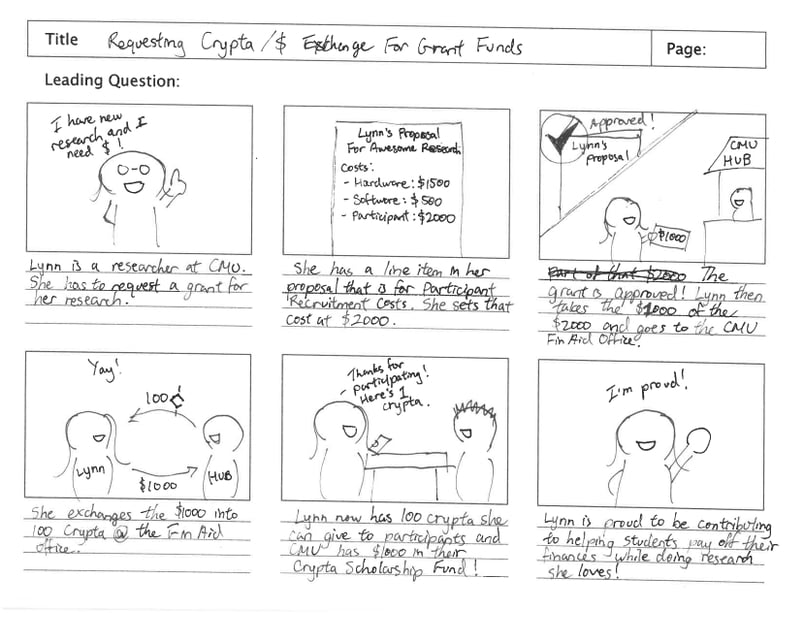 Title Requesting Crypta /$ Exchange For Grant Funds
Page:
Leading Question:
I have new
research and I
need $!
Lynn is a researcher at CMU.
She has to request a grant for
her research.
Lynn's Proposal
For Awesome Research
Costs:
- Hardware: $1500
- Software: $500
- Participant: $2000
She has a line item in her
proposal that is for Participant
Recruitment Costs. She sets that
cost at $2000.
Approved!
Lynn's
Proposal
CMU
HUB
$1000
Part of that $2000 The
grant is approved! Lynn then
takes the $1000 of the
$2000 and goes to the CMU
Fin Aid Office.
Yay!
100
Lynn
HUB
$1000
She exchanges the $1000 into
100 Crypta @ the Fin Aid
office.
Thanks for
participating!
Here's 1
crypta.
Lynn now has 100 crypta she
can give to participants and
CMU has $1000 in their
Crypta Scholarship Fund!
I'm proud!
Lynn is proud to be contributing
to helping students pay off their
finances while doing research
she loves!